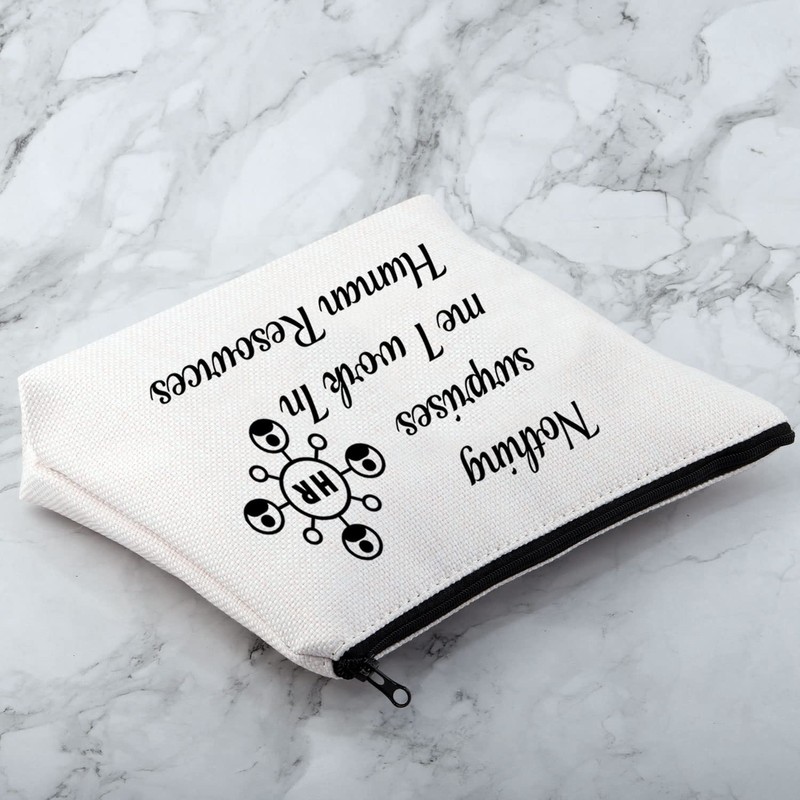 Nothing
surprises
me I work In
Human Resources
HR